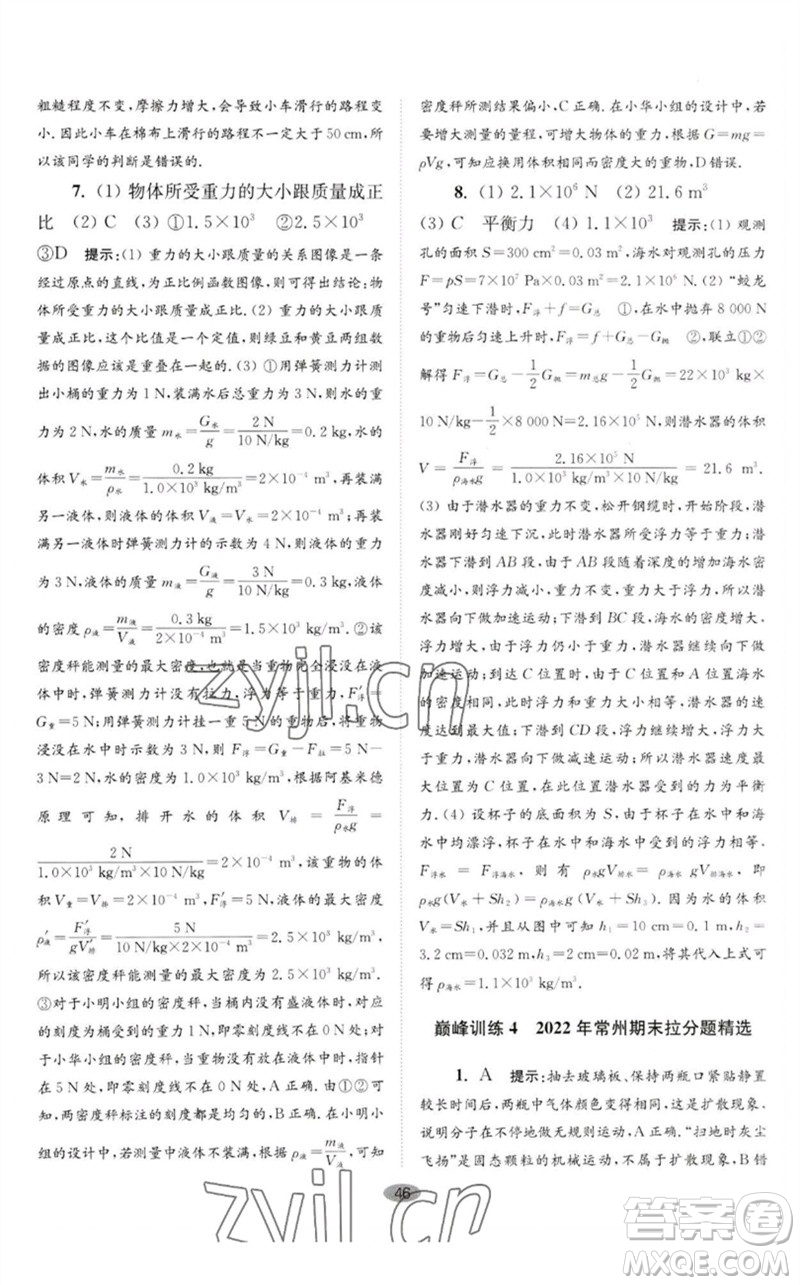 粗糙程度不变,摩擦力增大,会导致小车滑行的路程变
小. 因此小车在棉布上滑行的路程不一定大于 50 cm,所
以该同学的判断是错误的.
7. (1) 物体所受重力的大小跟质量成正
比 (2) C (3) ①1.5×10³ ②2.5×10³
③D 提示:(1) 重力的大小跟质量的关系图像是一条
经过原点的直线,为正比例函数图像,可得出结论:物
体所受重力的大小跟质量成正比. (2) 重力的大小跟质
量成正比,这个比值是一个定值,则绿豆和黄豆两组数
据的图像应该是重叠在一起的. (3) ①用弹簧测力计测
出小桶的重力为 1 N,装满水后总重力为 3 N,则水的重
力为 2 N,水的质量 m水=G水/g=2 N/10 N/kg=0.2 kg,水的
体积 V水=m水/ρ水=0.2 kg/1.0×10³ kg/m³=2×10⁻⁴ m³,再装满
另一液体,则液体的体积 V液=V水=2×10⁻⁴ m³;再装满
另一液体时弹簧测力计的示数为 4 N,则液体的重力
为 3 N,液体的质量 m液=G液/g=3 N/10 N/kg=0.3 kg,液体
的密度 ρ液=m液/V液=0.3 kg/2×10⁻⁴ m³=1.5×10³ kg/m³. ②该
密度秤能测量的最大密度,也就是当重物完全浸没在液
体中时,弹簧测力计没有拉力,浮力等于重力,F′浮=
G重=5 N;用弹簧测力计挂一重 5 N 的重物后,将重物
浸没在水中,则 F浮=G重-F拉=5 N-
3 N=2 N,水的密度为 1.0×10³ kg/m³,根据阿基米德
原理可知,排开水的体积 V排=F浮/ρ水g=
2 N/1.0×10³ kg/m³×10 N/kg=2×10⁻⁴ m³,该重物的体
积 V重=V排=2×10⁻⁴ m³,该液体的密度
ρ′液=F′浮/gV′排=5 N/10 N/kg×2×10⁻⁴ m³=2.5×10³ kg/m³,
所以该密度秤能测量的最大密度为 2.5×10³ kg/m³.
③对于小明小组的密度秤,当桶内没有盛液体时,对应的
示数是 1 N,即零刻度在 1 N 处;对于小华小组的密度
秤,当重物没有浸在液体中时,其受的浮力为零,指针
在 5 N 处,即零刻度在 5 N 处,A 正确. 由前面的分析可
知,两密度秤标注的刻度都是均匀的,B 正确. 在小明小
组的设计中,当测量液体不装满,根据 ρ液=m液/V液 可知
密度秤所测结果偏小,C 正确. 在小华小组的设计中,若
要增大测量的量程,可增大物体的重力,根据 G=mg=
ρVg,可知应换用体积相同而密度大的物体,D 错误.
8. (1) 2.1×10⁶ N (2) 21.6 m³
(3) C 平衡力 (4) 1.1×10³ 提示:(1) 观测
孔的面积 S=300 cm²=0.03 m²,海水对观测孔的压力
F=pS=7×10⁷ Pa×0.03 m²=2.1×10⁶ N. (2) “蛟龙
号”匀速下潜时,F浮+f=G总 ①,在水中抛弃 8 000 N
的重物后匀速上升时,F浮=f+G总-G抛 ②,联立①②
解得 F浮=G总-1/2G抛=G总-1/2G抛=22×10³ kg×
10 N/kg-1/2×8 000 N=2.16×10⁵ N,则潜水器的体积
V=F浮/ρ海水g=2.16×10⁵ N/1.0×10³ kg/m³×10 N/kg=21.6 m³.
(3) 由于潜水器的重力不变,松开钢缆时,开始阶段,潜
水器刚好匀速下沉,此时潜水器所受浮力等于重力;当
潜水器下潜到 AB 段,由于随着深度的增加海水密度
减小,则浮力减小,浮力小于重力,此时潜水器继续向
下做加速运动;下潜到 BC 段时,海水的密度变大,浮
力变大,由于浮力仍小于重力,潜水器继续向下做
加速运动;到达 C 位置时,由于 C 位置和 A 位置海水
的密度相同,此时浮力和重力大小相等,潜水器速度
达到最大值;下潜到 CD 段,浮力继续增大,浮力大于
重力,潜水器向下做减速运动. 所以潜水器速度最大位
置为 C 位置,在该位置潜水器所受的力为平衡
力. (4) 设杯子的底面积为 S,由于杯子在水中和海
水中均漂浮,杯子在水中和海水中受到的浮力相等,
F浮水=F浮海水,即 ρ水gV排水=ρ海水gV排海水,即
ρ水g(V+Sh₂)=ρ海水g(V+Sh₃),杯子内水的体积
V水=Sh₁,并且从图中可以读出 h₁=2 cm=0.02 m,h₂=
3.2 cm=0.032 m,h₃=2 cm=0.02 m,将其代入上式可
得 ρ海水=1.1×10³ kg/m³.
巅峰训练 4 2022 年常州期末拉分题精选
1. A 提示:抽去玻璃板、保持两瓶口紧贴静置
较长时间后,两瓶中气体颜色变得相同,是扩散现象,
说明分子在不停地做无规则运动,A 正确. “扫地时灰尘
飞扬”是固态颗粒的机械运动,不属于扩散现象,B 错
46
zyjl.cn
zyjl.cn
答案圈
MXQE.COM